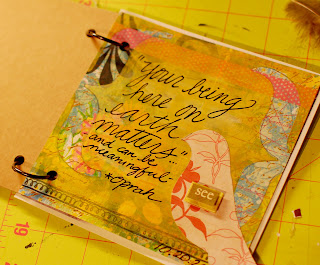 "Your being
here on
earth
matters..."
and can be
meaningful.
*oprah
see
10.20.
19